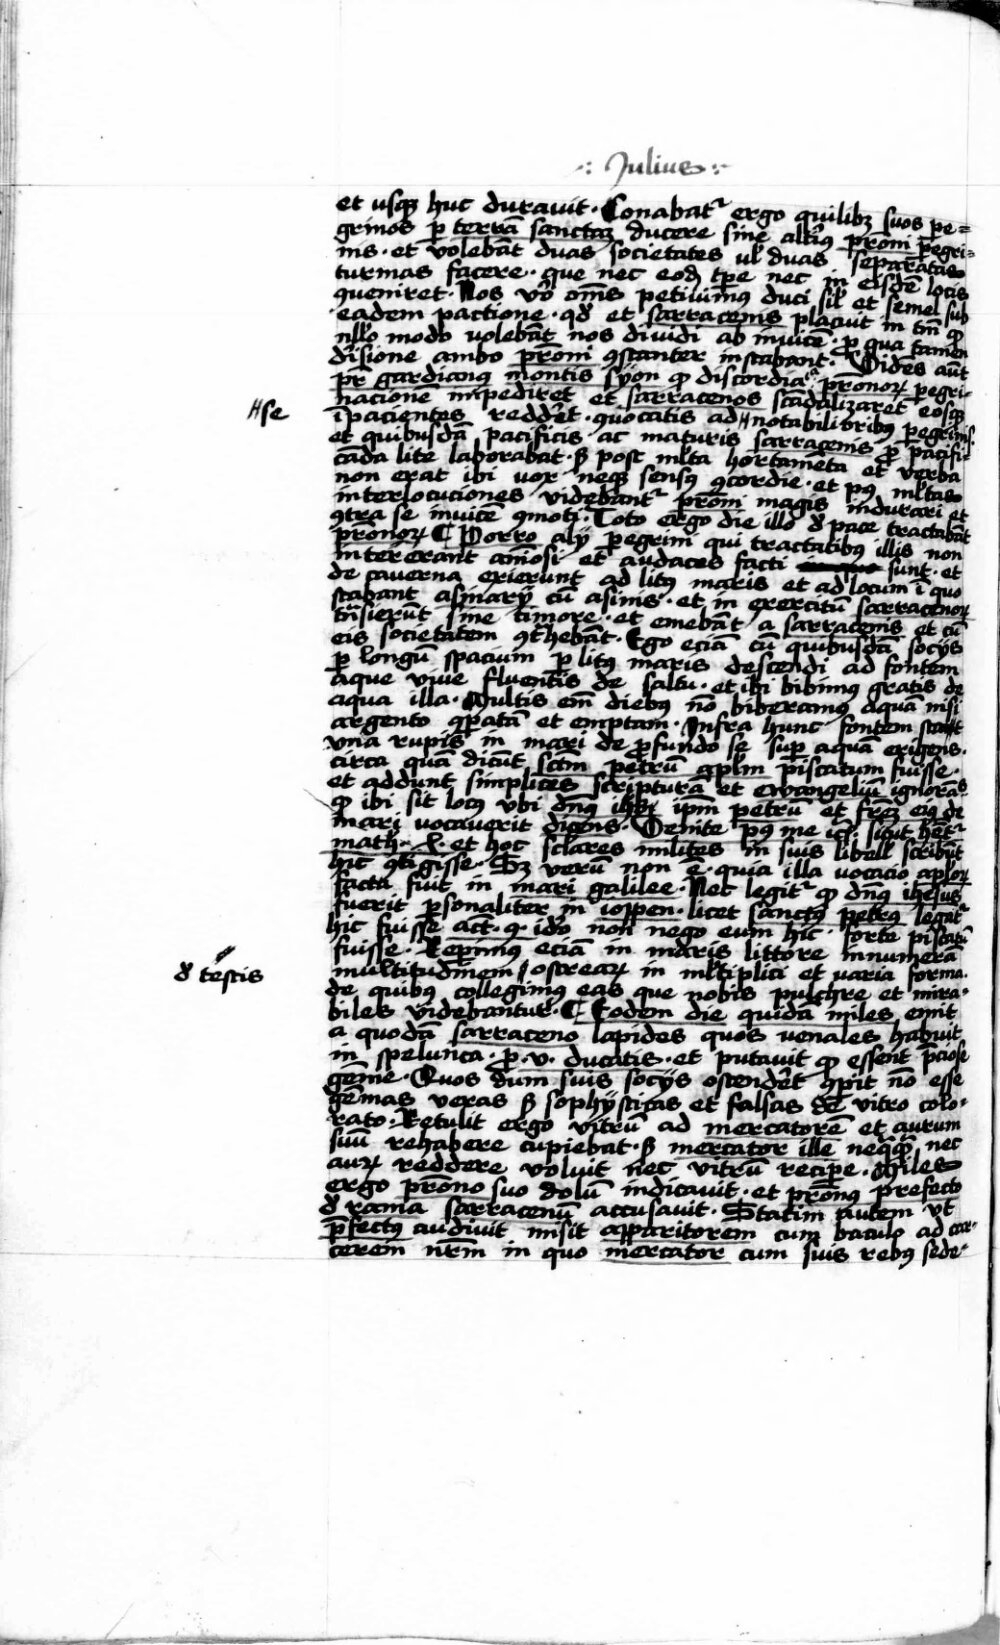 ·:Julius:·
et usqꝫ huc durauit· Conabatᷣ ergo quilibꝫ suos pe=
grinos ꝑ terrā sanctaꝫ ducere sine altiꝰ pr̄oni pegri=
nis· et volebāt duas societates ul̓ duas separatas
turmas facere· que nec eodꝫ tp̄e nec in eisdē locis
ꝯueniret· Nos v̓o om̄s petiuimꝰ duci sil̓ et semel sub
eadem pactione· qd̓ et sarracenis placuit in tm̄ ꝙ
nll̓o modo volebāt nos diuidi ab inuicē· ꝓ qua tamen
diuisione ambo pr̄oni ꝯstanter instabant· Vidēs aūt
pr̄ gardianꝰ montis syon ꝙ discordia pr̄onoꝝ pegri-
nacione impediret et sarracenos scādalizaret eosqꝫ
īpacientes redder̄t· ꝯuocatis ad notabilioribꝰ pegrinis·
se
et quibusdā pacificis· ac maturis sarracenis ꝓ pacifi-
cāda lite laborabat· sꝫ post ml̓ta hortamēta et verba
non erat ibi vox neqꝫ sensꝰ ꝯcordie· et pꝰ ml̓tas
interlocutiones videbantᷣ pr̄oni magis indurari et
ꝯtra se inuicē ꝯmoti· Toto ergo die illo d̓ pace tractabāt
pr̄onoꝝ ¶ Porro alij pegrini qui tractatibꝰ illis non
intererant aīosi et audaces facti sunt· et
de cauerna exierunt ad litꝰ maris et ad locum ī quo
stabant asinarij cū asinis· et in exercitū sarracenoꝝ
trāsierūt sine timore· et emebāt a sarracenis et cū
eis societatem ꝯt̓hebāt· Ego eciā cū quibusdā socijs
ꝑ longū spacium ꝑ litꝰ maris descendi ad fontem
aque viue fluentis de saltu· et ibi bibimꝰ gratis de
aqua illa· Multis em̄ diebꝰ nō biberamꝰ aquā nisi
argento ꝯparatā et emptam· Infra hunc fontem stabat
vna rupis in mari de ꝓfundo se sup aquā erigens·
circa quā dicūt sctm̄ petrū apl̓m piscatum fuisse·
et addunt simplices scripturā et ewangeliū ignorātes
ꝙ ibi sit locꝰ vbi dn̄ꝰ ihūs ipm̄ petrū et fr̄eꝫ eiꝰ de
mari vocauerit dicens· Venite pꝰ me ⁊cꝫ· sicut hētᷣ
math· x· et hoc sclares milites in suis libell̓ scribūt
hic ꝯtigisse· Sꝫ verū non ē· quia illa vocacio apl̓oꝝ
facta fuit in mari galilee· Nec legitᷣ ꝙ dn̄ꝰ ihesus
fuerit ꝑsonaliter in ioppen· licet sanctꝰ petrꝰ legatᷣ
hic fuisse act· 9· id̓o non nego eum hic forte piscatū
fuisse· Reꝑimꝰ eciā in maris littore innumerā
multitudinem ostrearꝫ in ml̓tiplici et uaria forma·
d̓ testis
de quibꝰ collegimꝰ eas que nobis pulchre et mira-
biles videbantur· ¶ Eodem die quidā miles emit
a quodā sarraceno lapides quos venales habuit
in spelunca· ꝓ ·v· ducatis· et putauit ꝙ essent p̄ciose
gēme· Quos dum suis socijs ostender̄t ꝯperit nō esse
gēmas veras sꝫ sophisticas et falsas de vitro colo-
rato· Retulit ergo vitrū ad mercatorē et aurum
suū rehabere cupiebat· sꝫ mercator ille neqꝙꝫ nec
aurꝫ reddere voluit nec vitrū recipe· Miles
ergo pr̄ono suo dolū indicauit· et pr̄onꝰ prefecto
d̓ rama sarracenū accusauit· Statim autem vt
p̄fectus audiuit misit apparitorem cum baculo ad car-
cerem nr̄m in quo mercator cum suis rebꝰ sede-